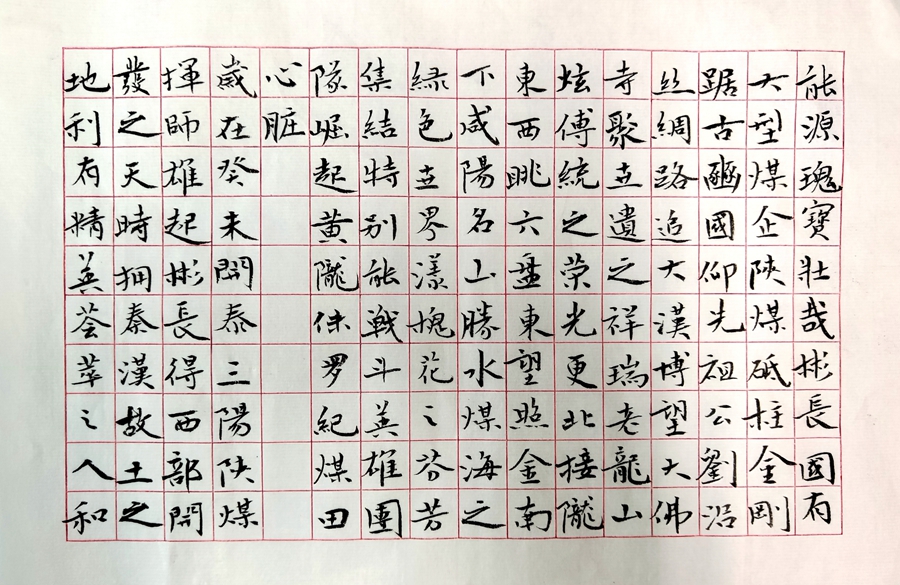 能源瑰寶壯哉彬長國有
大型煤企陝煤砥柱金剛
踞古豳國仰先祖公劉沿
丝綢路追大漢博望大佛
寺聚世遺之祥瑞老龍山
炫傅統之荣光更北接隴
東西眺六盘東望照金南
下咸陽名山勝水煤海之
绿色世界漾槐花之芬芳
集結特别能戰斗英雄團
隊崛起黄隴侏罗紀煤田
心脏
歲在癸未開泰三陽陝煤
揮師雄起彬長得西部開
發之天時拥秦漢故土之
地利有精英荟萃之人和